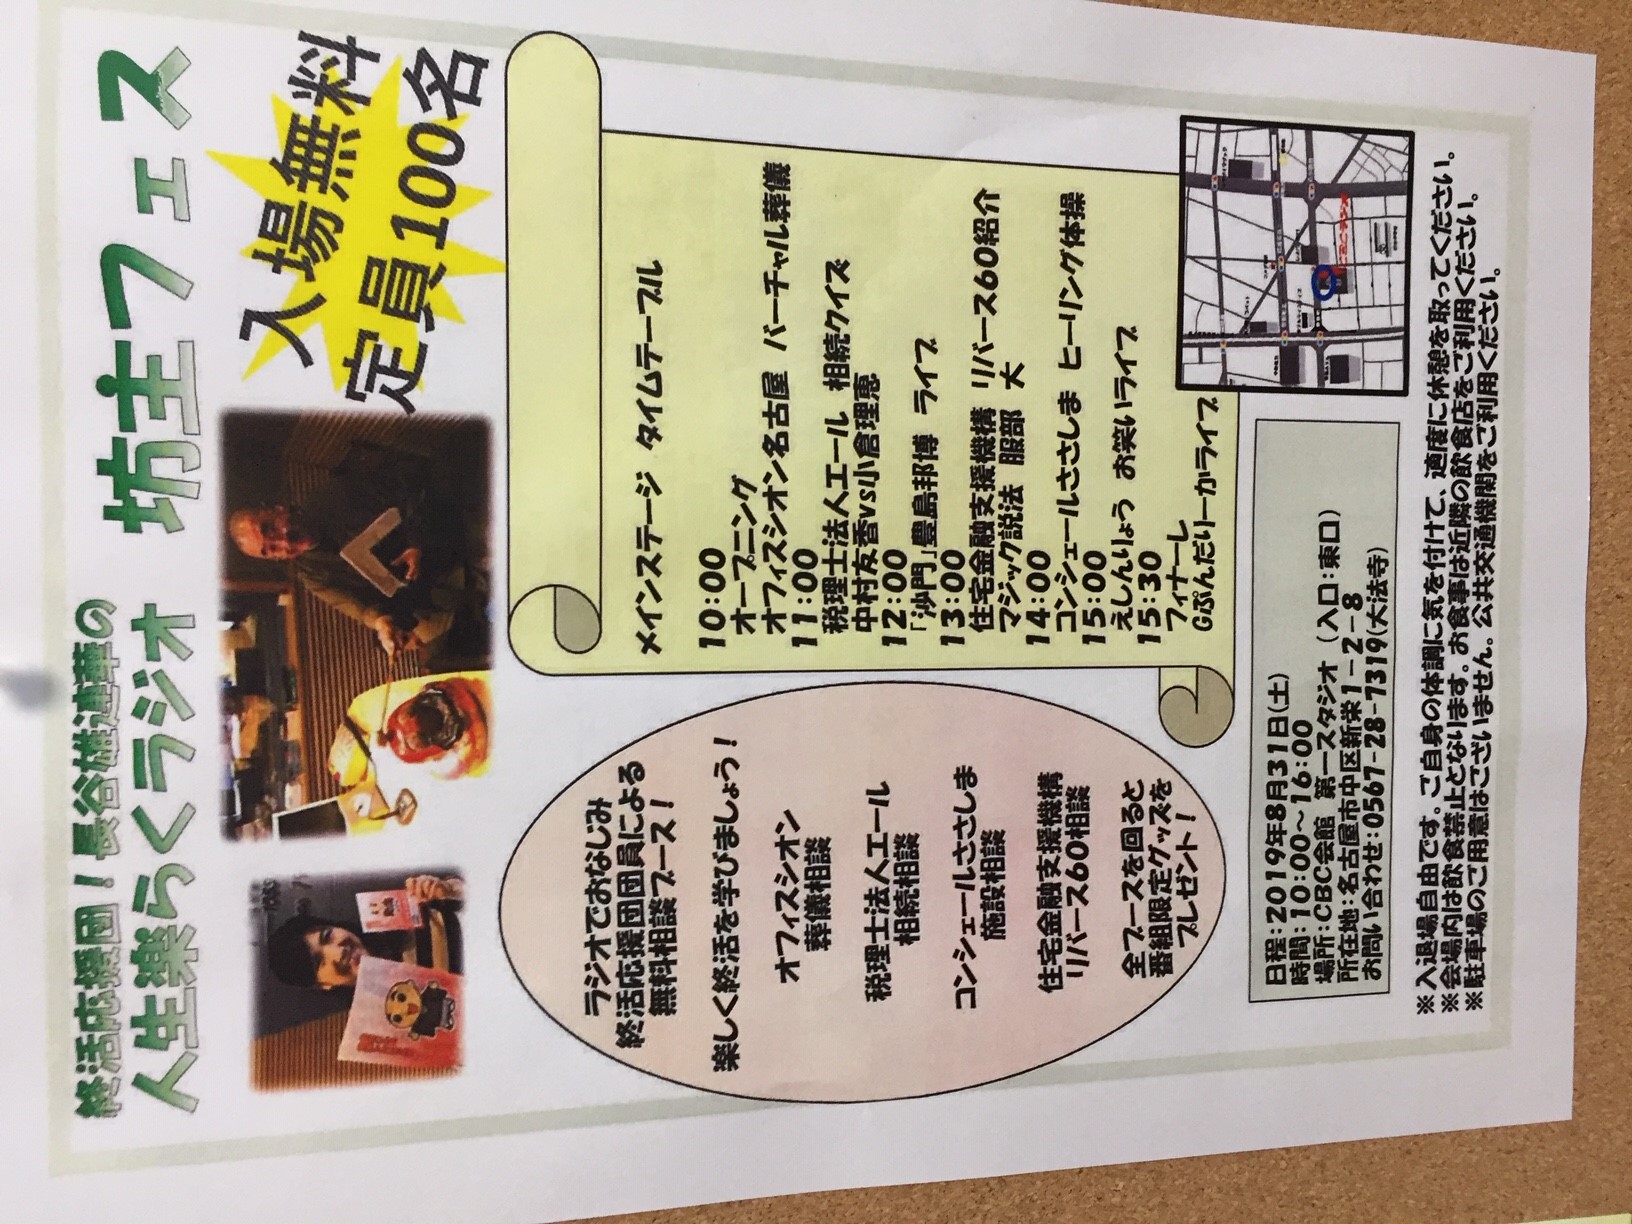 終活応援団！長谷雄蓮華の
人生楽らくラジオ 坊主フェス
入場無料
定員100名
ラジオでおなじみ
終活応援団団員による
無料相談ブース！
楽しく終活を学びましょう！
オフィスシオン
葬儀相談
税理士法人エール
相続相談
コンシェールささしま
施設相談
住宅金融支援機構
リバース60相談
全ブースを回ると
番組限定グッズを
プレゼント！
メインステージ タイムテーブル
10:00
オープニング
オフィスシオン名古屋 バーチャル葬儀
11:00
税理士法人エール 相続クイズ
中村友香vs小倉理恵
12:00
「沙門」豊島邦博 ライブ
13:00
住宅金融支援機構 リバース60紹介
マジック説法 服部 大
14:00
コンシェールささしま ヒーリング体操
15:00
えしんりょう お笑いライブ
15:30
フィナーレ
Gぷんだりーかライブ
日程:2019年8月31日(土)
時間:10:00〜16:00
場所:CBC会館 第一スタジオ (入口:東口)
所在地:名古屋市中区新栄1-2-8
お問い合わせ:0567-28-7319(大法寺)
※入退場自由です。ご自身の体調に気を付けて、適度に休憩を取ってください。
※会場内は飲食禁止となります。お食事は近隣の飲食店をご利用ください。
※駐車場のご用意はございません。公共交通機関をご利用ください。